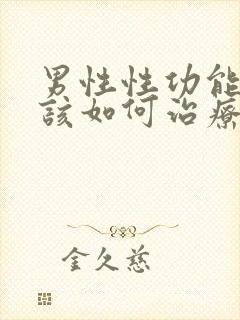 男性性功能
該如何治療
金久慈